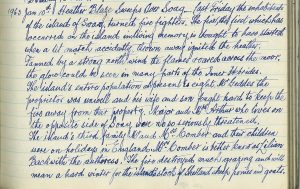 1960 Jan 15th Heather Blaze Sweeps over Soay. Last Friday the inhabitants
of the island of Soay, turned fire fighters. The first hill fire which has
occurred in the island within memory is thought to have started
when a lit match accidently thrown away ignited the heather.
Fanned by a strong north wind the flames roared across the moor,
the glow could be seen in many parts of the Inner Hebrides.
The island's entire population at present is eight. Mr Geddes the
proprietor was unwell and his wife and son fought hard to keep the
fire away from their property. Major and Mrs who lives on
the opposite side of Soay were not so seriously threatened.
The island's third family M and Mrs Comber and their children
were on holiday in England. Mrs Comber is better known as fiction
the authoress. The fire destroyed much grazing and will
mean a hard winter for the island's stock of shetland sheep, ponies and goats.